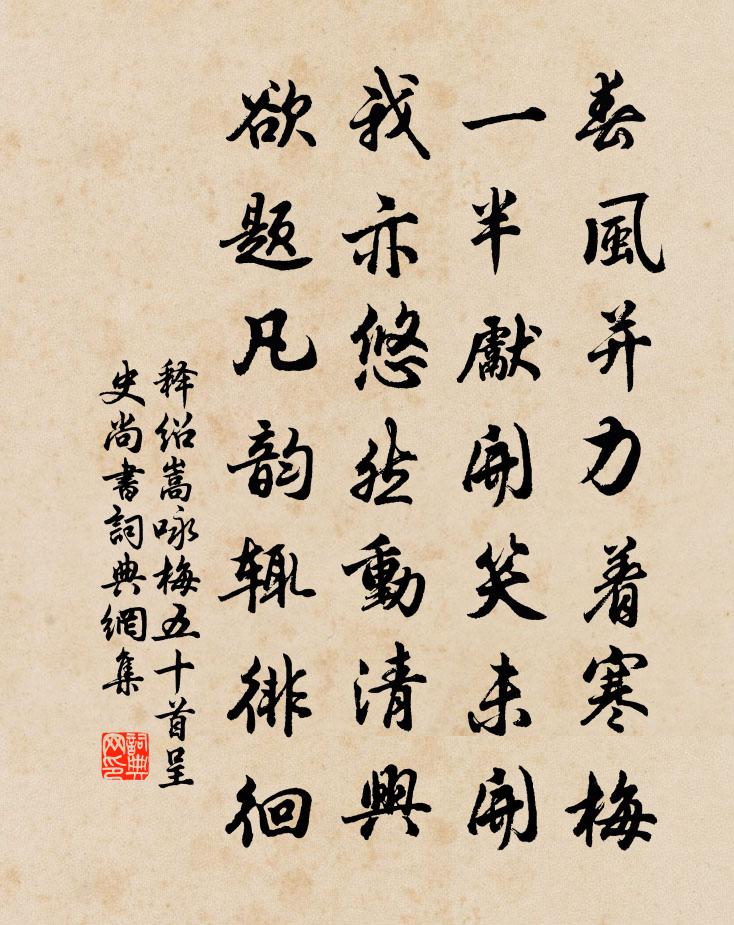 春風并力着寒梅
一半獻開笑未開
我亦悠然動清興
欲题凡韵辄徘徊
释绍嵩咏梅五十首呈
史尚書詞典網集
詞典网印